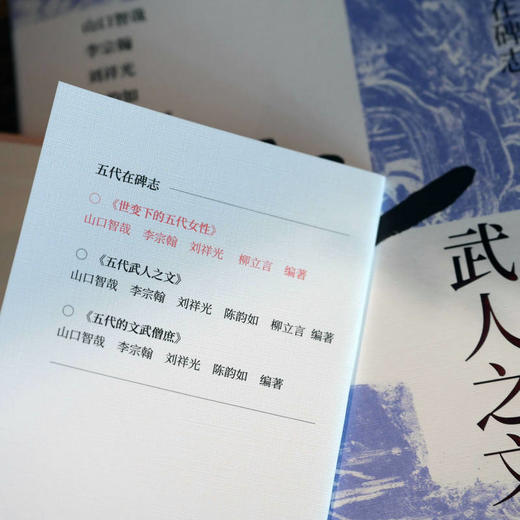 山口智哉
李宗翰
刘祥光
韵如
在碑志
五代在碑志
○ 《世变下的五代女性》
山口智哉 李宗翰 刘祥光 柳立言 编著
○ 《五代武人之文》
山口智哉 李宗翰 刘祥光 陈韵如 柳立言 编著
○ 《五代的文武僧庶》
山口智哉 李宗翰 刘祥光 陈韵如 编著
武人之文